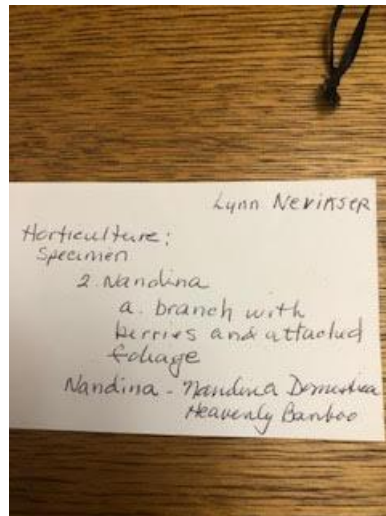 Lynn Nevinser
Horticulture:
Specimen
2. Nandina
a. branch with
berries and attached
foliage
Nandina - Nandina Domestica
Heavenly Bamboo